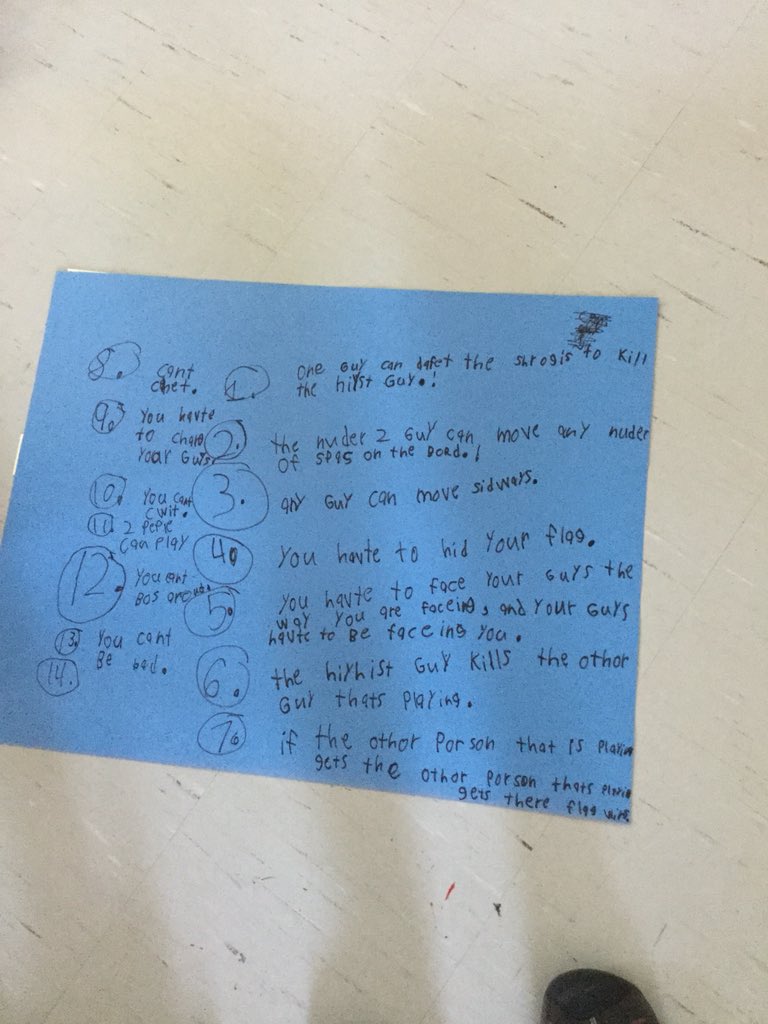 1. one Guy can dafet the shrogis to kill
the hiyst Guy.!
2. the nuder 2 Guy can move any nuder
of spas on the Doad.!
3. any Guy can move sidways.
4. You havte to hid Your flag.
5. You havte to face Your Guys the
way You are faceing, and Your Guys
havte to Be faceing You.
6. the hiyhist Guy kills the othor
Guy thats Playing.
7. if the othor Porson that is Playin
gets the othor Porson thats
gets there flag wins
8. cant
chet.
9. You havte
to
Your Guys
10. You cant
cwit.
11. 2 PePle
can Play
12. You cant
Bos
13. You cant
Be bad.
14.